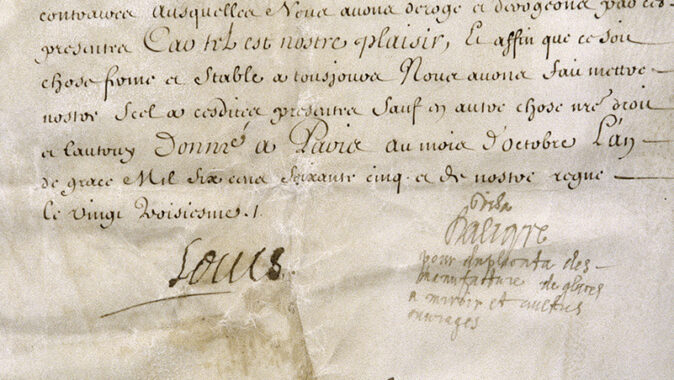 contraires Ausquelles Nous avons deroge et derogeons par ces
presentes Car tel est nostre plaisir, Et affin que ce soit
chose ferme et stable a tousjours Nous avons faict mettre
nostre Scel a cesdites presentes Sauf en autre chose nre droit
et lautruy Donné a Paris au mois d'octobre L'an
de grace Mil six cens soixante cinq et de nostre regne
le vingt troisiesme.
Louis
Visa
pour des
manufacture de glaces
a miroir et autres
ouvrages